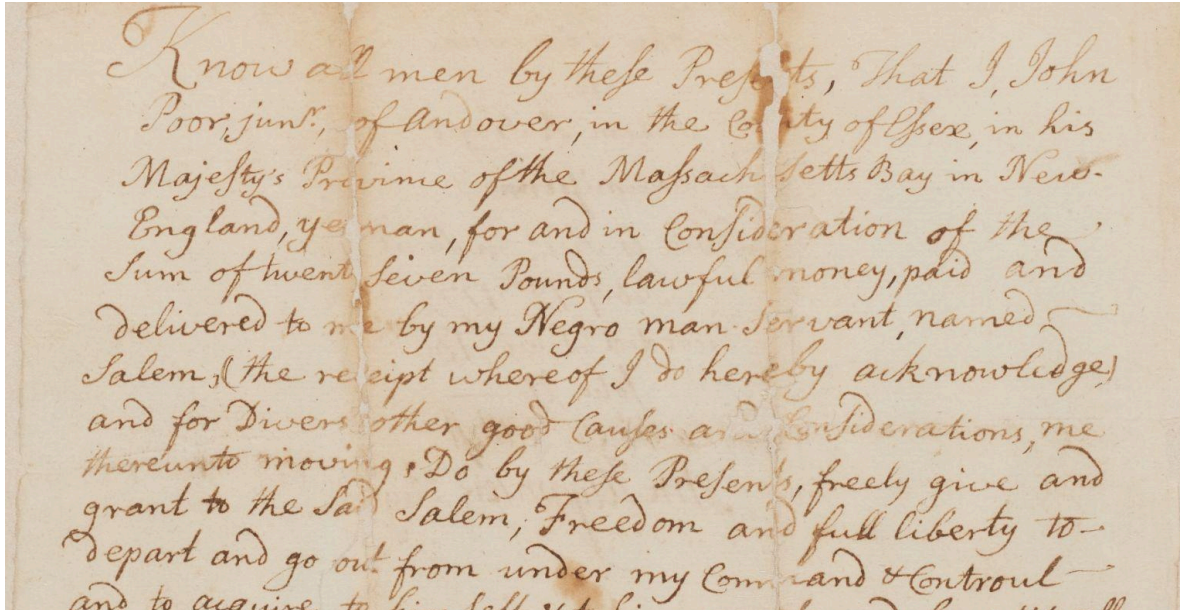 Know all men by these Presents, That I, John
Poor, junr., of Andover, in the County of Essex, in his
Majesty's Province of the Massachusetts Bay in New-
England, yeoman, for and in Consideration of the
Sum of twenty Seven Pounds, lawful money, paid and
delivered to me by my Negro man Servant, named
Salem, (the receipt whereof I do hereby acknowledge)
and for Divers other good Causes and Considerations, me
thereunto moving, Do by these Presents, freely give and
grant to the Said Salem, Freedom and full liberty to
depart and go out from under my Command & Controul
and to acquire to